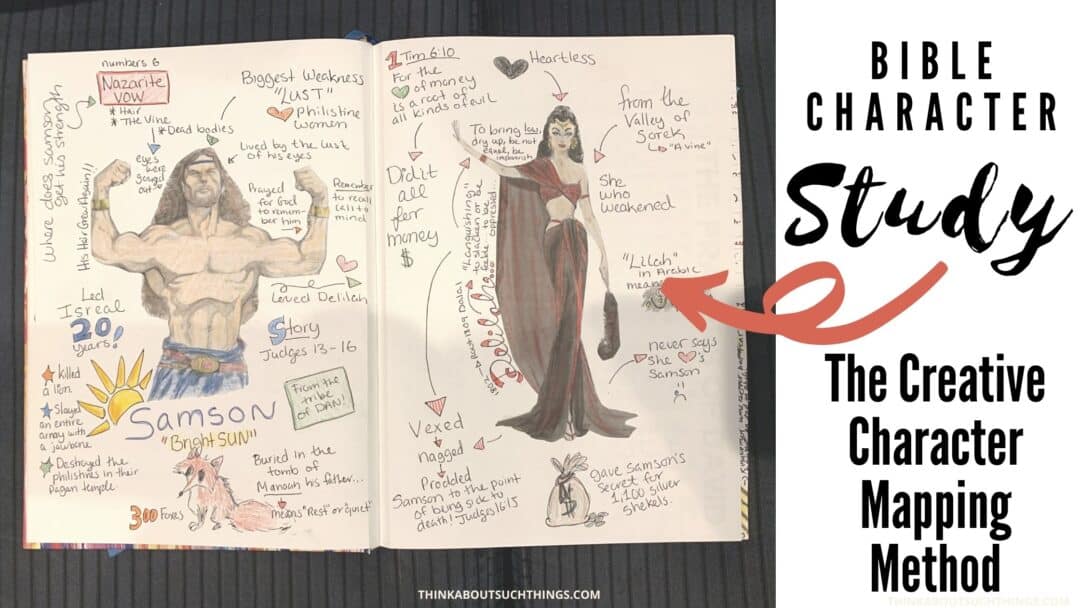 numbers 6
Nazarite
VOW
* Hair
* The Vine
* Dead bodies
where does samson
get his strength
Biggest Weakness
"LUST"
Philistine
women
eyes
were
gouged
out
Lived by the lust
of his eyes
His Hair Grew Again!!
Prayed
for God
to remem-
ber him
Remember
to recall
call to
mind
Loved Delilah
Led
Isreal
20
years!
Story
Judges 13-16
killed
a lion.
Slayed
an entire
army with
a jawbone
Destroyed the
philistines in their
pagan temple.
From the
tribe
of DAN!
Samson
"Bright SUN"
300 Foxes
Buried in the
tomb of
Manoah his father...
means "Rest" or "quiet"
1 Tim 6:10
For the
of money
is a root of
all kinds of evil
Didn't
all
for
money
$
Heartless
To bring low,
dry up, be not
equal, be
impoverish
from the
Valley of
Sorek
"A vine"
She
who
weakened
"Languishing"
to slacken or be
feeble to be
oppressed...
Delilah
"Lilah"
in Arabic
means
never says
she
's
Samson
Vexed
nagged
Prodded
Samson to the point
of being sick to
death! Judges 16:15
gave Samson's
secret for
1,100 silver
shekels.
BIBLE
CHARACTER
Study
The Creative
Character
Mapping
Method
THINKABOUTSUCHTHINGS.COM
THINKABOUTSUCHTHINGS.COM